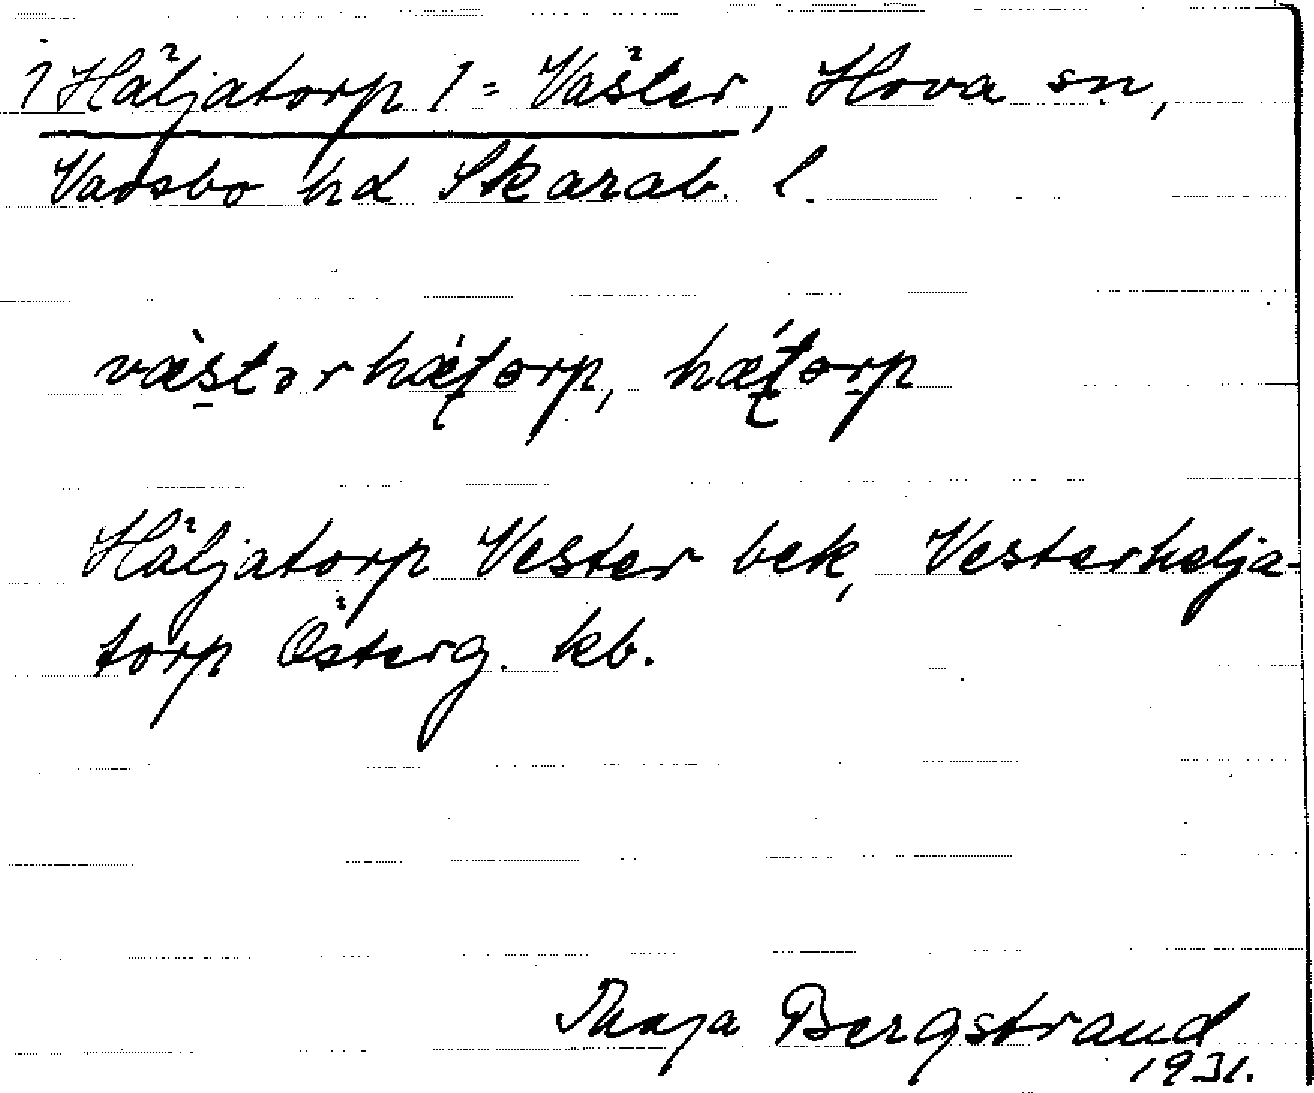 1 Häljatorp 1 = Väster, Hova sn,
Vadsbo hd Skarab. l.
västərhætorp, hætorp
Häljatorp Vester bek, Vesterhelja-
torp Österg. kb.
Bergstrand
1931.